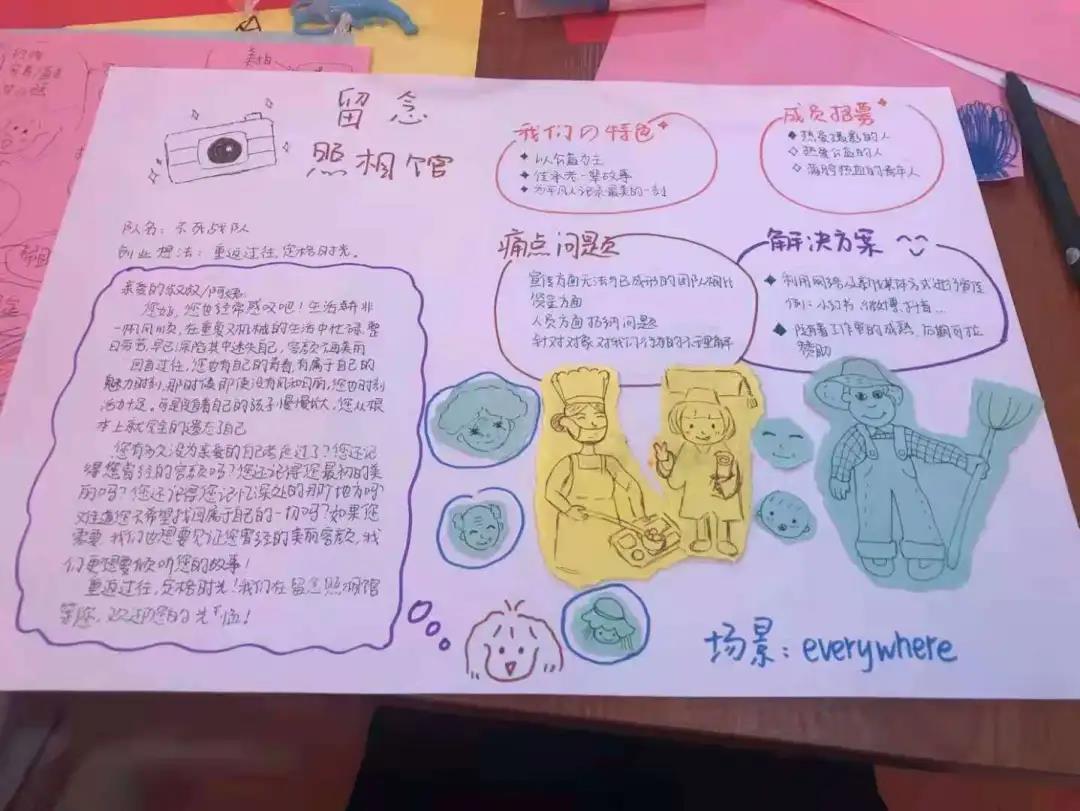 留念
照相馆
队名：不死战队
创业想法：重返过往，定格时光。
亲爱的叔叔/阿姨：
您好，您也经常感叹吧！生活并非
一帆风顺，在重复又机械的生活中忙碌，整
日劳苦，早已深陷其中迷失自己，容颜不再美丽
回首过往，您也有自己的青春，有属于自己的
魅力时刻，那时候即使没有
活力十足。可是随着自己的孩子慢慢长大，您从根
本上就完全的遗忘了自己
您有多久没为亲爱的自己考虑过了？您还记
得您曾经的容颜吗？您还记得您最初的美
丽吗？您还记得您记忆深处的那个地方吗
难道您不希望找回属于自己的一切吗？如果您
需要，我们也想要见证您曾经的美丽容颜，我
们更想要倾听您的故事！
重返过往，定格时光！我们在留念照相馆
等您，欢迎您的光临！
我们の特色
以公益为主
传承老一辈故事
为平凡人记录最美的一刻
成员招募
热爱摄影的人
热爱公益的人
满腔热血的青年人
痛点问题
宣传方面无法与已成形的团队相比
资金方面
人员方面招纳问题
针对对象对我们行为的不理解
解决方案
利用网络及新媒体方式进行宣传
例：小红书、微博、抖音...
随着工作室的成熟，后期可拉
赞助
场景：everywhere